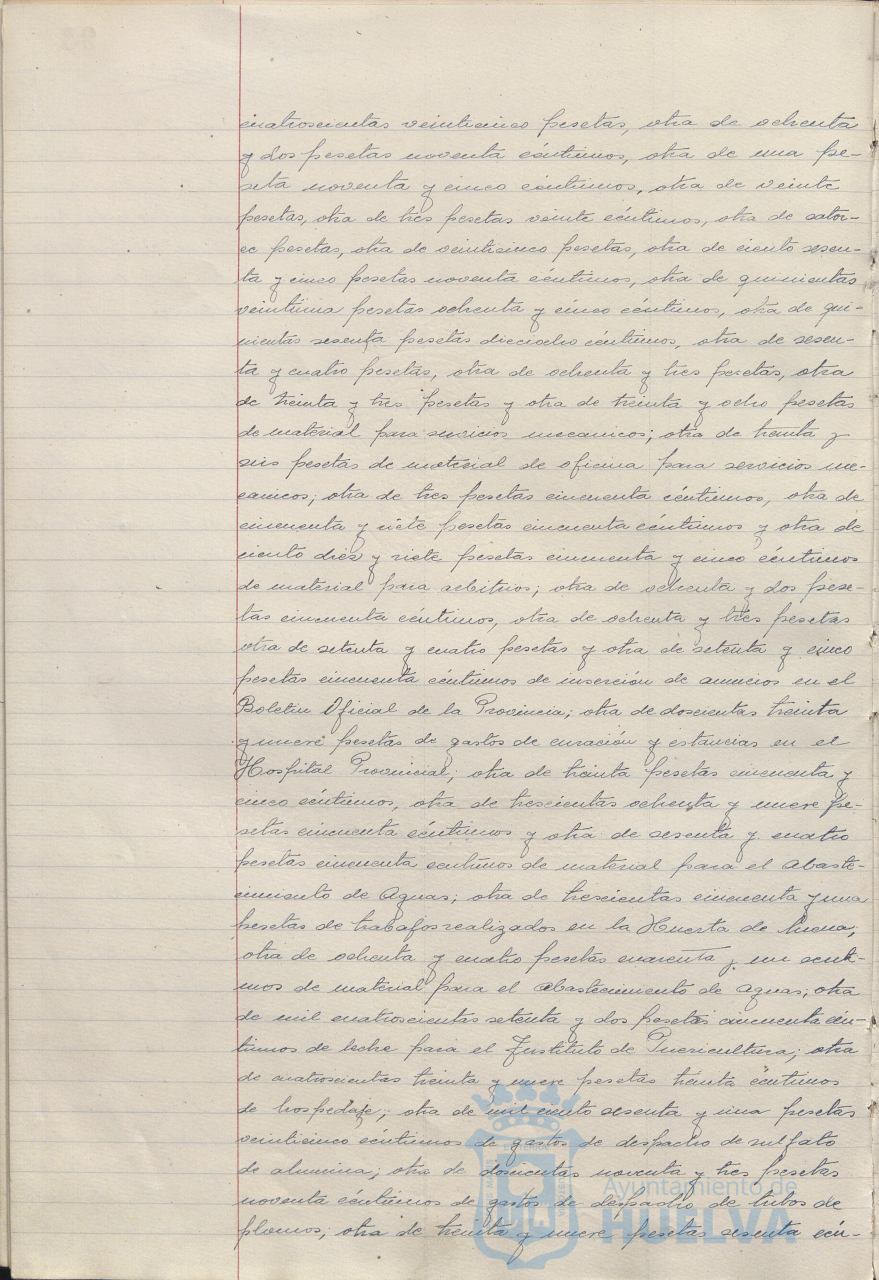 cuatroscientas veinticinco pesetas, otra de ochenta
y dos pesetas noventa céntimos, otra de una pe-
seta noventa y cinco céntimos, otra de veinte
pesetas, otra de tres pesetas veinte céntimos, otra de cator-
ce pesetas, otra de veinticinco pesetas, otra de ciento sesen-
ta y cinco pesetas noventa céntimos, otra de quinientas
veintiuna pesetas ochenta y cinco céntimos, otra de qui-
nientas sesenta pesetas dieciocho céntimos, otra de sesen-
ta y cuatro pesetas, otra de ochenta y tres pesetas, otra
de treinta y tres pesetas y otra de treinta y ocho pesetas
de material para servicios mecanicos; otra de treinta y
seis pesetas de material de oficina para servicios me-
canicos; otra de tres pesetas cincuenta céntimos, otra de
cincuenta y siete pesetas cincuenta céntimos y otra de
ciento diez y siete pesetas cincuenta y cinco céntimos
de material para arbitrios; otra de ochenta y dos pese-
tas cincuenta céntimos, otra de ochenta y tres pesetas
otra de setenta y cuatro pesetas y otra de setenta y cinco
pesetas cincuenta céntimos de inserción de anuncios en el
Boletin Oficial de la Provincia; otra de doscientas treinta
y nueve pesetas de gastos de curación y estancias en el
Hospital Provincial; otra de treinta pesetas cincuenta y
cinco céntimos, otra de trescientas ochenta y nueve pe-
setas cincuenta céntimos y otra de sesenta y cuatro
pesetas cincuenta centimos de material para el abaste-
cimiento de Aguas; otra de trescientas cincuenta y una
pesetas de trabajos realizados en la Huerta de Mena;
otra de ochenta y cuatro pesetas cuarenta y un centi-
mos de material para el abastecimiento de aguas; otra
de mil cuatroscientas setenta y dos pesetas cincuenta cén-
timos de leche para el Instituto de Puericultura; otra
de cuatroscientas treinta y nueve pesetas treinta céntimos
de hospedaje; otra de mil ciento sesenta y una pesetas
veinticinco céntimos de gastos de despacho de sulfato
de alumina; otra de doscientas noventa y tres pesetas
noventa céntimos de gastos de despacho de tubos de
plomos; otra de treinta y nueve pesetas sesenta cén-
Ayuntamiento de
HUELVA